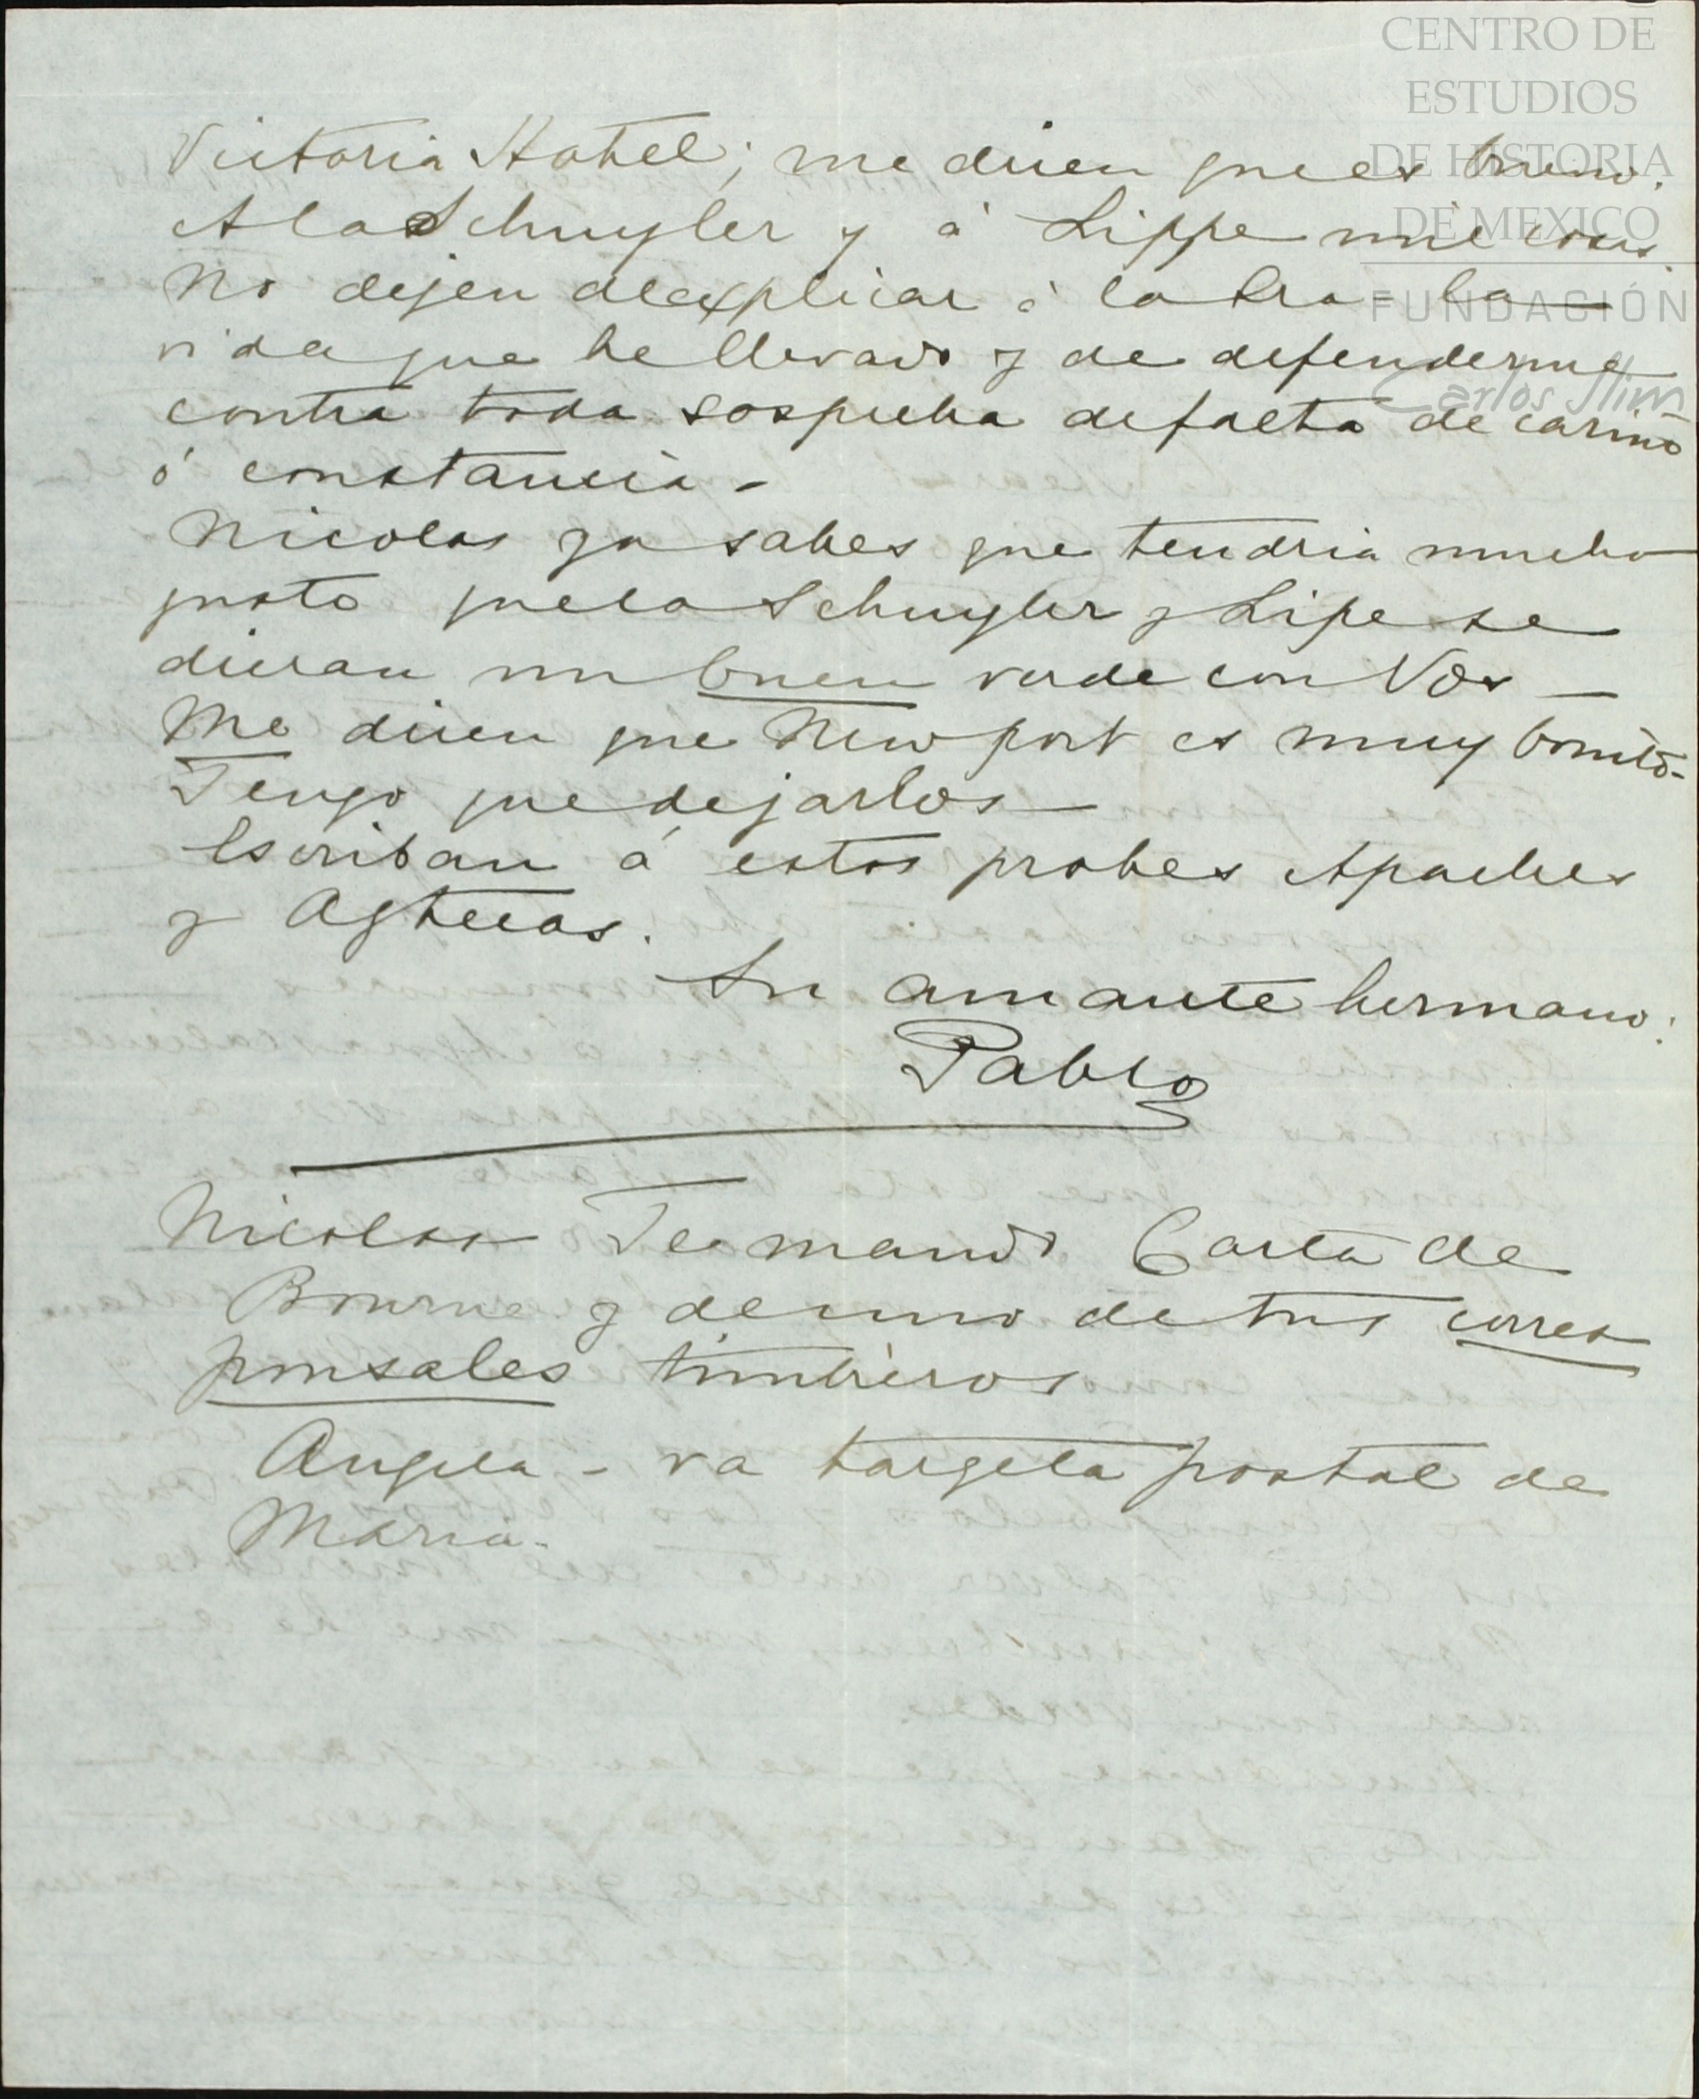 CENTRO DE
ESTUDIOS
DE HISTORIA
DE MEXICO
FUNDACIÓN
Carlos Slim
Victoria Hotel; me dicen que es bueno.
A la Schuyler y á Lippe mil cosas.
No dejen de explicar á la Sra - la
vida que he llevado y de defenderme
contra toda sospecha de falta de cariño
ó constancia -
Nicolas ya sabes que tendria mucho
gusto que la Schuyler y Lipe se
dieran un buen verde con Vds -
Me dicen que New port es muy bonito -
Tengo que dejarlos -
Escriban á estos probes Apaches
y Aztecas.
Su amante hermano:
Pablo
Nicolas Te mando Carta de
Bourne y de uno de tus corres
ponsales timbreros
Angela - va targeta postal de
Maria -